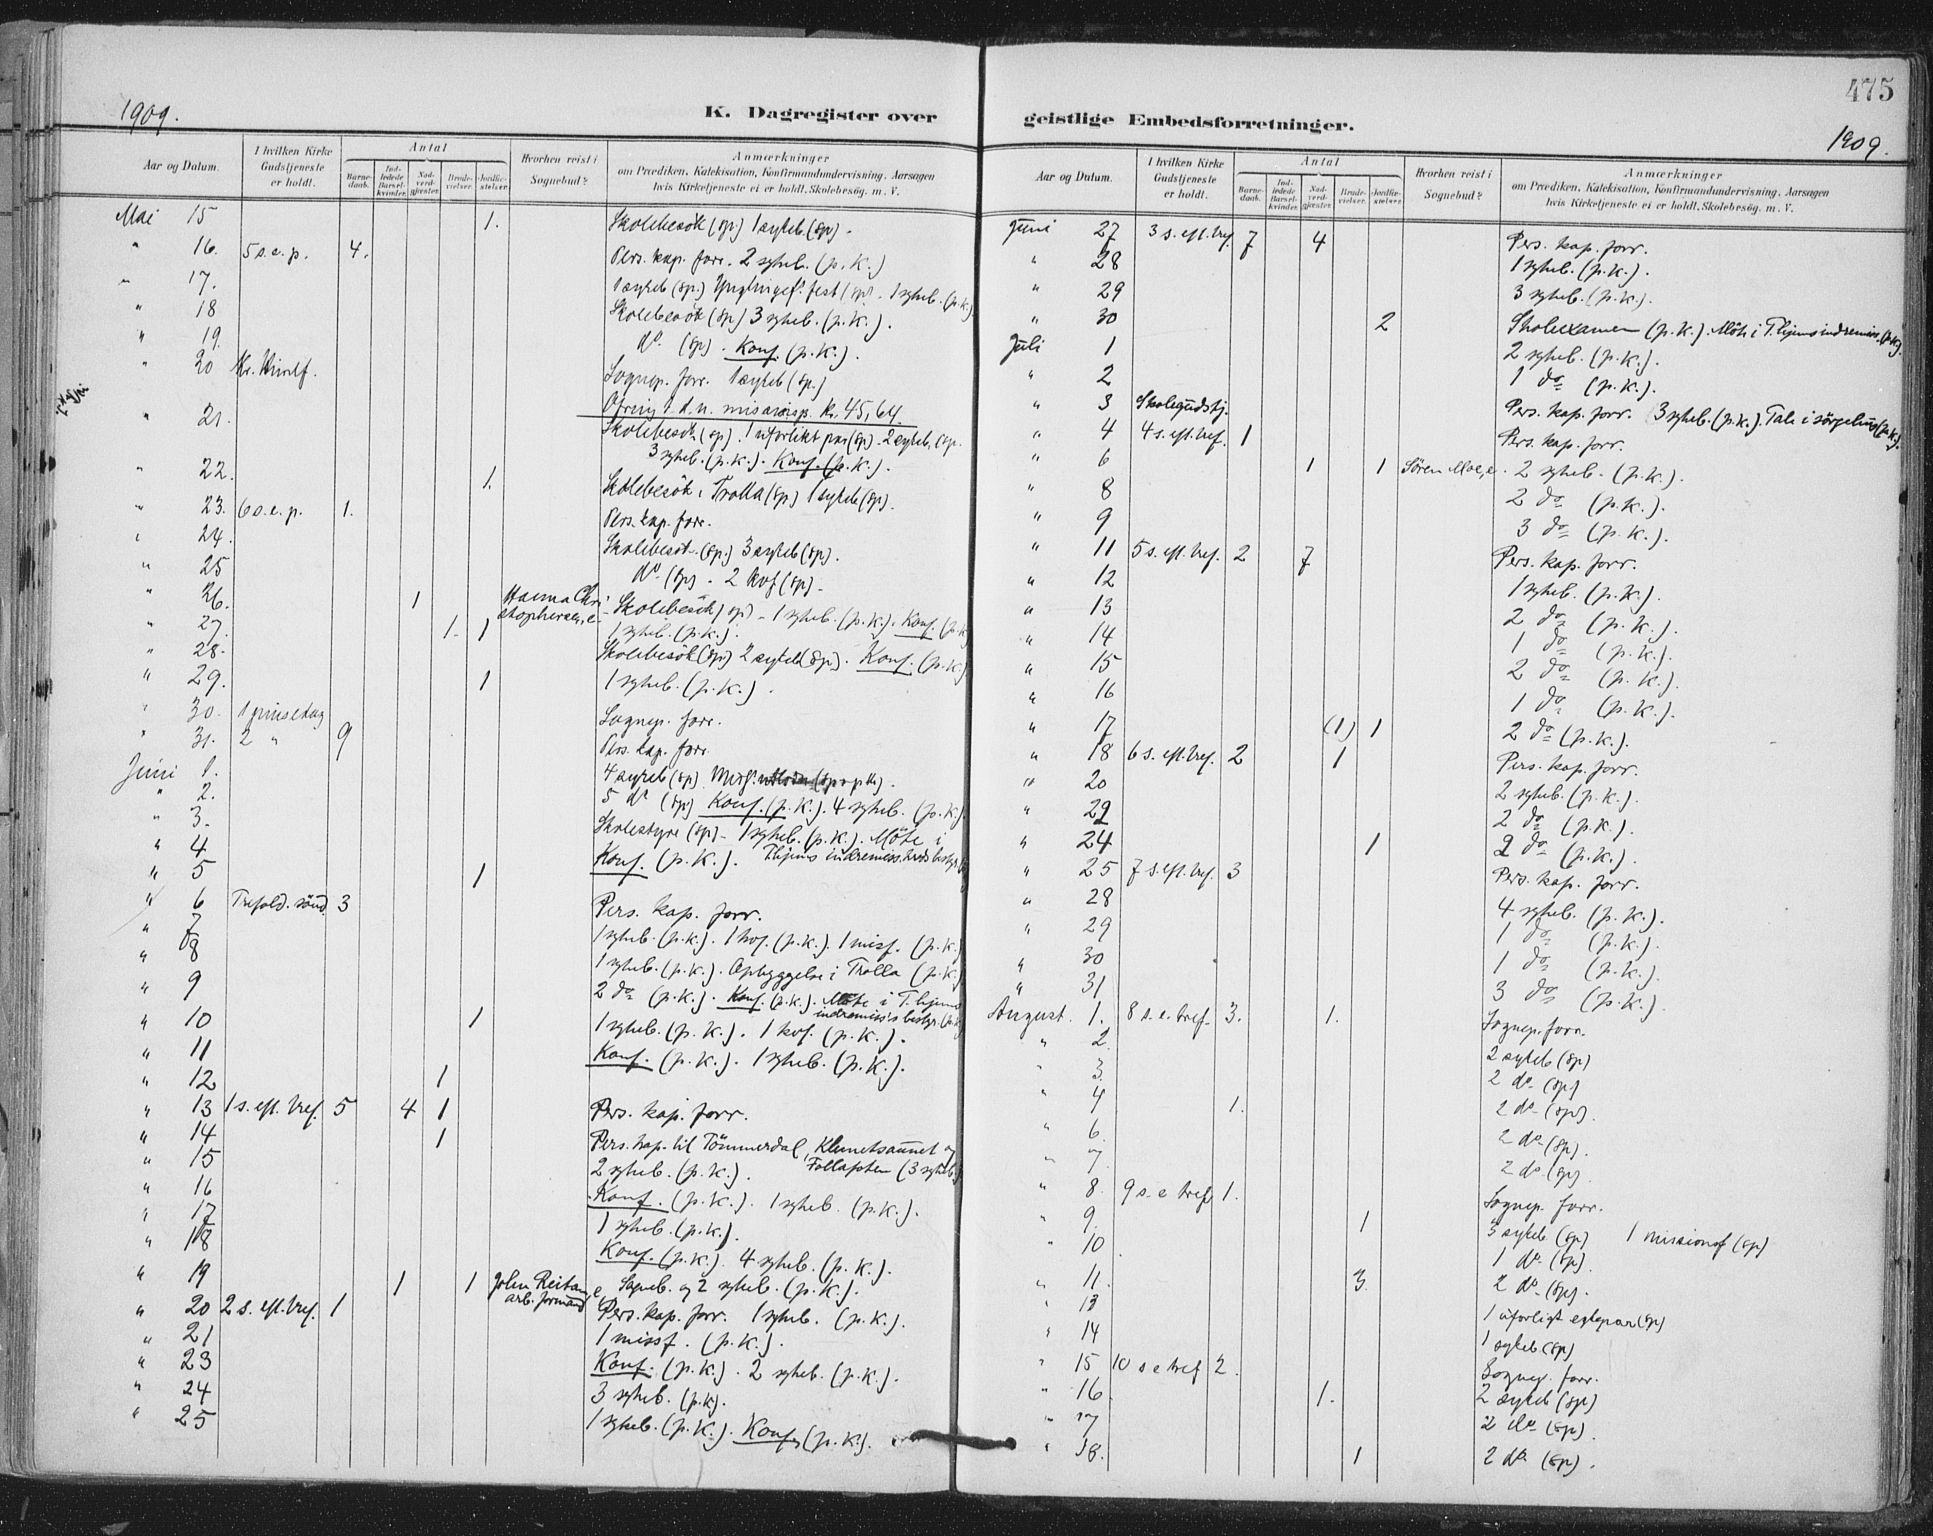 475
1909.
K. Dagregister over
geistlige Embedsforretninger.
1909.
Aar og Datum.
I hvilken Kirke Gudstjeneste er holdt.
Antal
Barnedaab.
Indledede Barselkvinder.
Nadverdgjester.
Brudevielser.
Jordfæstelser.
Hvorhen reist i Sognebud?
Anmærkninger
om Prædiken, Katekisation, Konfirmandundervisning, Aarsagen
hvis Kirketjeneste ei er holdt, Skolebesøg. m. V.
Mai 15 1. Skolebesök (sp.) 1 sykeb. (sp) -
" 16. 5 s. e. p. 4. Pers. kap. forr. 2 sykeb. (p. k.)
" 17. 1 sykeb (sp.) Ynglingef. fest (sp) - 1 sykeb. (p.k.)
" 18 Skolebesök (sp) 3 sykeb. (p. k.).
" 19. do. (sp). Konf. (p. k.).
" 20 Kr. Himlf. Sognep. forr. 1 sykeb (sp.)
Ofring t. d. n. misjonssp. Kr. 45,64.
" 21. Skolebesök (sp). 1 uforlikt par (sp). 2 sykeb. (sp.
3 sykeb. (p.k.). Konf. (p. k.).
" 22. 1. Skolebesök i Trolla (sp) 1 sykeb (sp).
" 23. 6 s. e. p. 1. Pers. kap. forr.
" 24. Skolebesök (sp.) 3 sykeb (sp).
" 25 do. (sp) - 2 kof (sp) -
" 26. 1 Hanna Christophersen, e. Skolebesök (sp) - 1 sykeb. (p.k.). Konf. (p.k.
" 27. 1. 1 1 sykeb. (p.k.).
" 28. Skolebesök (sp) 2 sykeb (sp). Konf. (p.k.)
" 29. 1 1 sykeb. (p.k.).
" 30. 1 pinsedag Sognep. forr.
" 31. 2 " 9 Pers. kap. forr.
Juni 1. 4 sykeb (sp)
" 2. 5 do (sp) Konf. (p.k.). 4 sykeb. (p.k.)
" 3. Skolestyre (sp) - 1 sykeb. (p.k.). Möte i
" 4 Konf. (p.k.). T.hjems indremiss.
" 5 1
" 6 Trefold. sönd. 3 Pers. kap. forr.
" 7 1 sykeb. (p.k.). 1 kof. (p.k.). 1 misf. (p.k.
" 8 1 sykeb. (p.k.). Opbyggelse i Trolla (p.k.
" 9 2 do (p.k.). Konf. (p.k.). Möte i T.hjems
indremiss's bestyr. (p.k.
" 10 1 1 sykeb. (p.k.). 1 kof. (p.k.).
" 11 Konf. (p.k.). 1 sykeb. (p.k.).
" 12 1
" 13 1 s. eft. tref. 5 4 1 Pers. kap. forr.
" 14 1 Pers. kap. til Tömmerdal, Klemetsaunet og
" 15 2 sykeb. (p.k.). (3 sykeb.)
" 16 Konf. (p.k.). 1 sykeb. (p.k.).
" 17 1 sykeb. (p.k.).
" 18 Konf. (p.k.). 4 sykeb. (p.k.).
" 19 1 1 John Reitan, e. arb. formand Sogneb. og 2 sykeb. (p.k.).
" 20 2 s. eft. tref. 1 Pers. kap. forr. 1 sykeb. (p.k.).
" 21 1 missf. (p.k.).
" 23 Konf. (p.k.). 2 sykeb. (p.k.).
" 24 3 sykeb. (p.k).
" 25 1 sykeb. (p.k.). Konf. (p.k.).
Aar og Datum.
I hvilken Kirke Gudstjeneste er holdt.
Antal
Barnedaab.
Indledede Barselkvinder.
Nadverdgjester.
Brudevielser.
Jordfæstelser.
Hvorhen reist i Sognebud?
Anmærkninger
om Prædiken, Katekisation, Konfirmandundervisning, Aarsagen
hvis Kirketjeneste ei er holdt, Skolebesøg. m. V.
Juni 27 3 s. eft. tref. 7 4 Pers. kap. forr.
" 28 1 sykeb. (p.k.).
" 29 3 sykeb. (p.k.).
" 30 2 Skolexamen (p.k.). Möte i T.hjems indremiss. (p.k.).
Juli 1 2 sykeb. (p.k.).
" 2 1 do (p.k.).
" 3 Skolegudstj. Pers. kap. forr. 3 sykeb. (p.k.). Tale i (p.k.).
" 4 4 s. eft. tref. 1 Pers. kap. forr.
" 6 1 1 Sören Moe, e. 2 sykeb. (p.k.).
" 8 2 do (p.k.).
" 9 3 do (p.k.).
" 11 5 s. eft. tref. 2 7 Pers. kap. forr.
" 12 1 sykeb. (p.k.).
" 13 2 do (p.k.).
" 14 1 do (p.k.).
" 15 2 do (p.k.).
" 16 1 do (p.k.).
" 17 (1) 1 2 do (p.k.).
" 18 6 s. eft. tref. 2 1 Pers. kap. forr.
" 20 2 sykeb. (p.k.).
" 22 2 do (p.k.).
" 24 1 2 do (p.k.).
" 25 7 s. eft. tref. 3 Pers. kap. forr.
" 28 4 sykeb. (p.k.).
" 29 1 do (p.k.).
" 30 1 do (p.k.).
" 31 3 do (p.k.).
August. 1. 8 s. e. tref. 3. 1. Sognep. forr.
" 2. 2 sykeb (sp)
" 3. 2 do (sp)
" 4 1. 2 do (sp).
" 6. 2 do (sp).
" 7. 2 do (sp).
" 8. 9 s. e tref 1. Sognep. forr.
" 9. 1 3 sykeb (sp) 1 missionsf (sp)
" 10. 1 do. (sp).
" 11. 3. 2 do. (sp).
" 13 1 uforligt egtepar (sp)
" 14 1 sykeb (sp)
" 15 10 s e tref 2. Sognep. forr.
" 16. 1. 2 sykeb (sp)
" 17 2 do (sp).
" 18. 1 2 do. (sp).